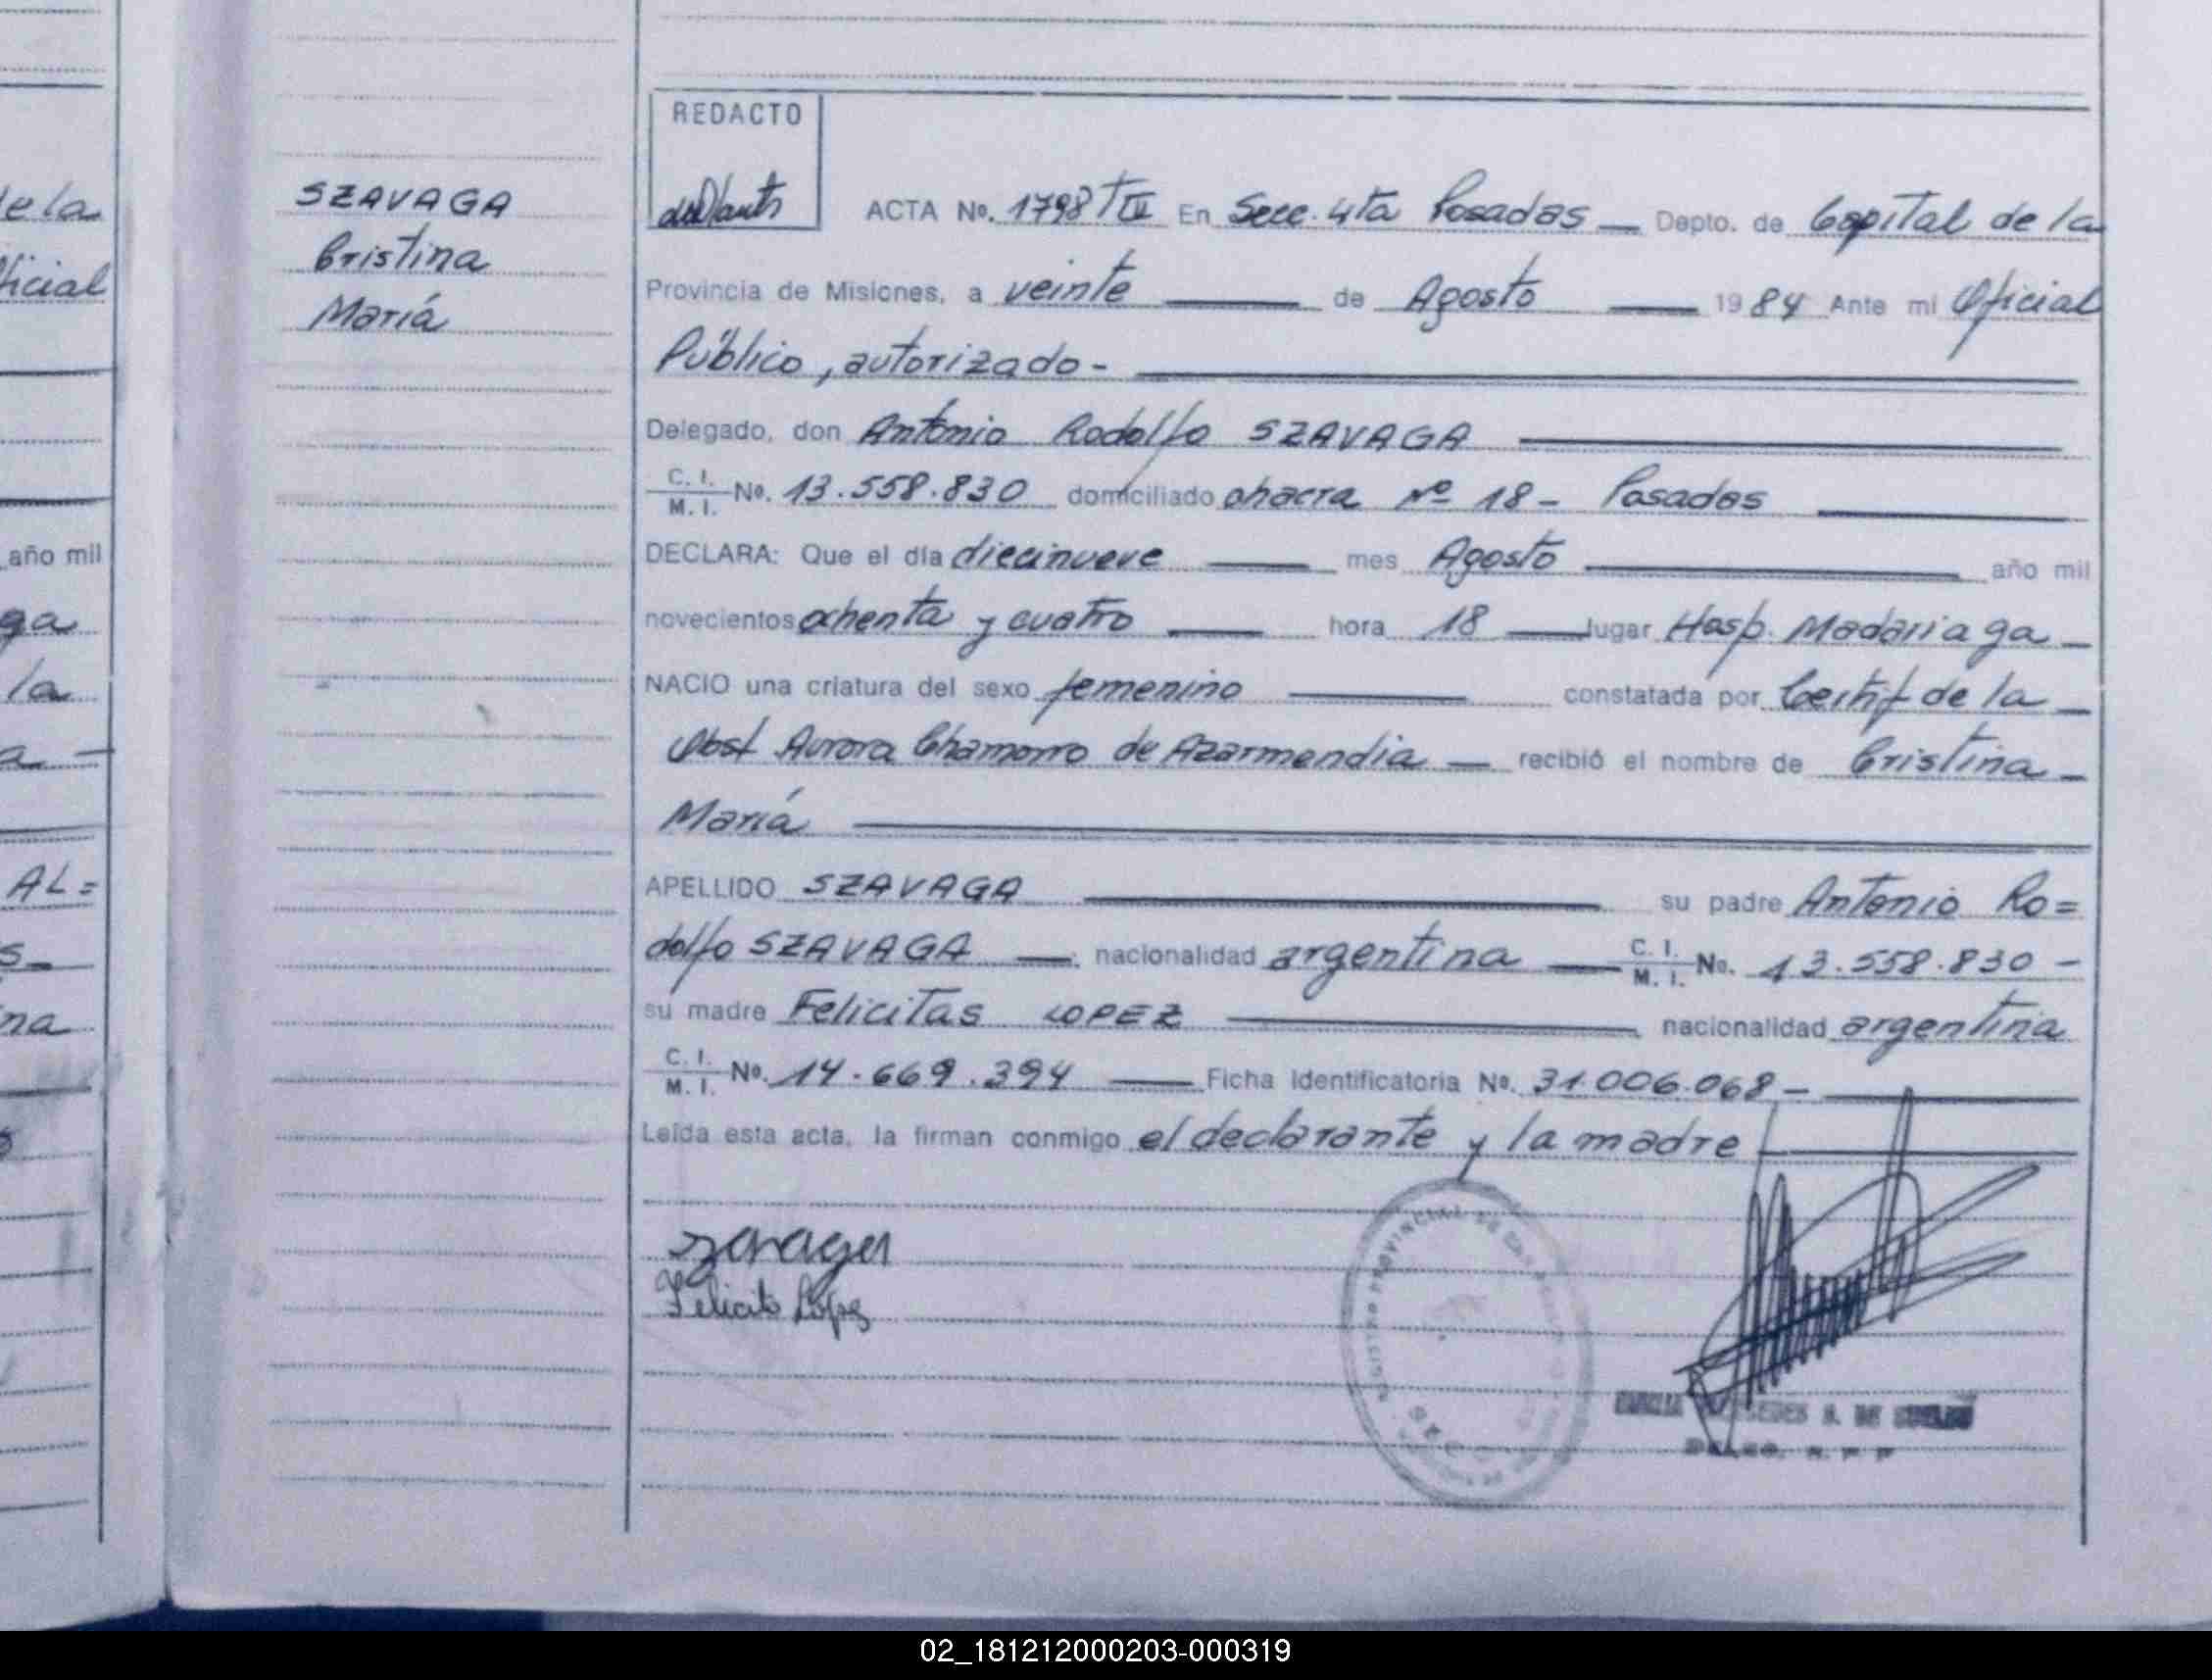 e la
ficial
año mil
ga
la
a —
AL=
s
na
SZAVAGA
Cristina
María
REDACTO
ACTA No. 1798 En Secc. 4ta Posadas — Depto. de Capital de la
Provincia de Misiones, a veinte — de Agosto — 1984 Ante mi Oficial
Público, autorizado -
Delegado, don Antonio Rodolfo SZAVAGA
C. I.
M. I. No. 13.558.830 domiciliado chacra Nº 18 - Posadas
DECLARA: Que el día diecinueve — mes Agosto — año mil
novecientos ochenta y cuatro — hora 18 — lugar Hosp. Madariaga —
NACIO una criatura del sexo femenino — constatada por Certif de la —
Obst Aurora Chamorro de Azarmendia — recibió el nombre de Cristina —
María
APELLIDO SZAVAGA — su padre Antonio Ro=
dolfo SZAVAGA — nacionalidad argentina — C. I.
M. I. No. 13.558.830 -
su madre Felicitas LOPEZ — nacionalidad argentina
C. I.
M. I. No. 14.669.394 — Ficha Identificatoria No. 31.006.068 -
Leída esta acta, la firman conmigo el declarante y la madre
Felicita López
02_181212000203-000319